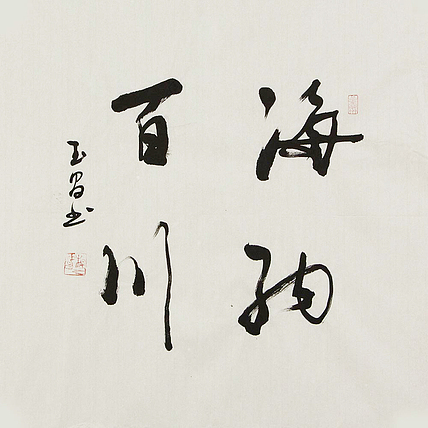 海纳
百川
玉昌书